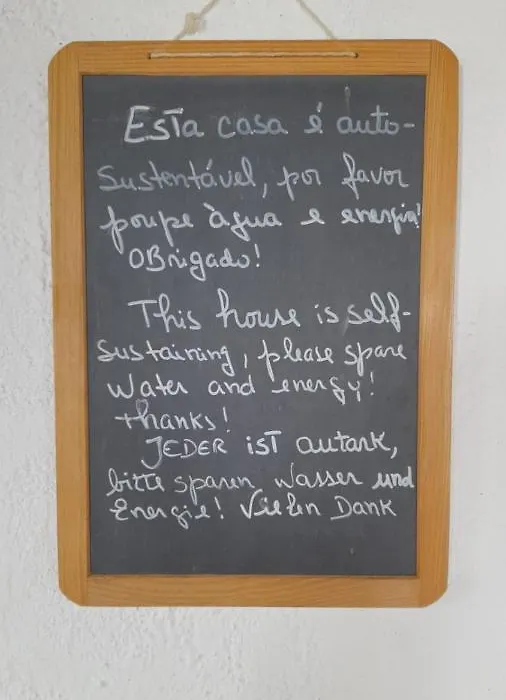 Esta casa é auto-
Sustentável, por favor
poupe àgua e energia!
OBrigado!
This house is self-
sustaining, please spare
Water and energy!
thanks!
JEDER iST autark,
bitte sparen Wasser und
Energie! Vielen Dank